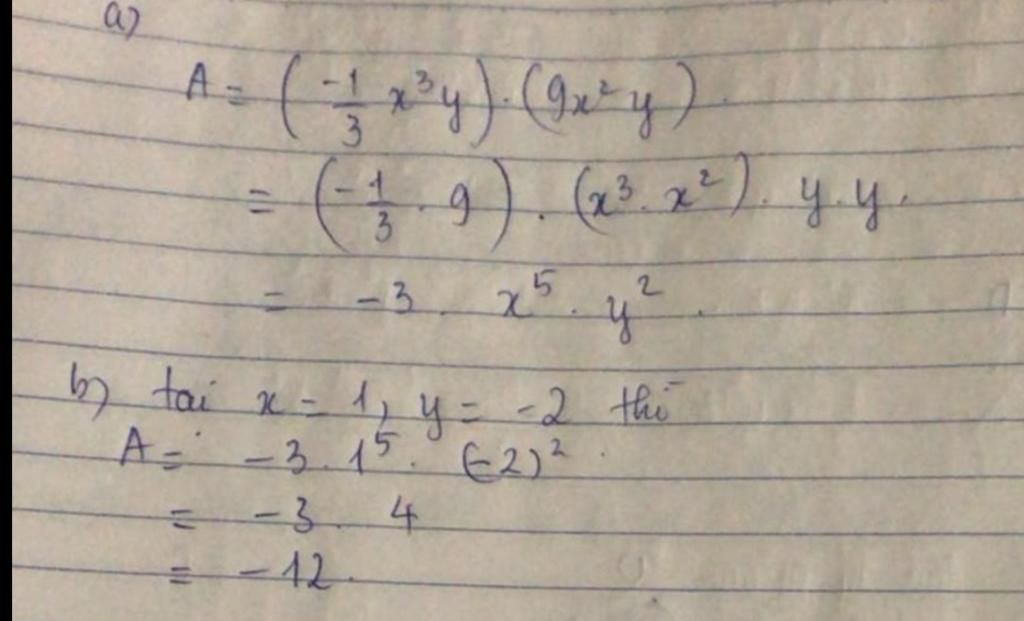 a)
A = (-1/3 x³y).(9x²y).
= (-1/3 . 9) . (x³. x²). y.y.
= -3. x⁵. y².
b) tại x = 1, y = -2 thì
A = -3.1⁵. (-2)².
= -3. 4
= -12.